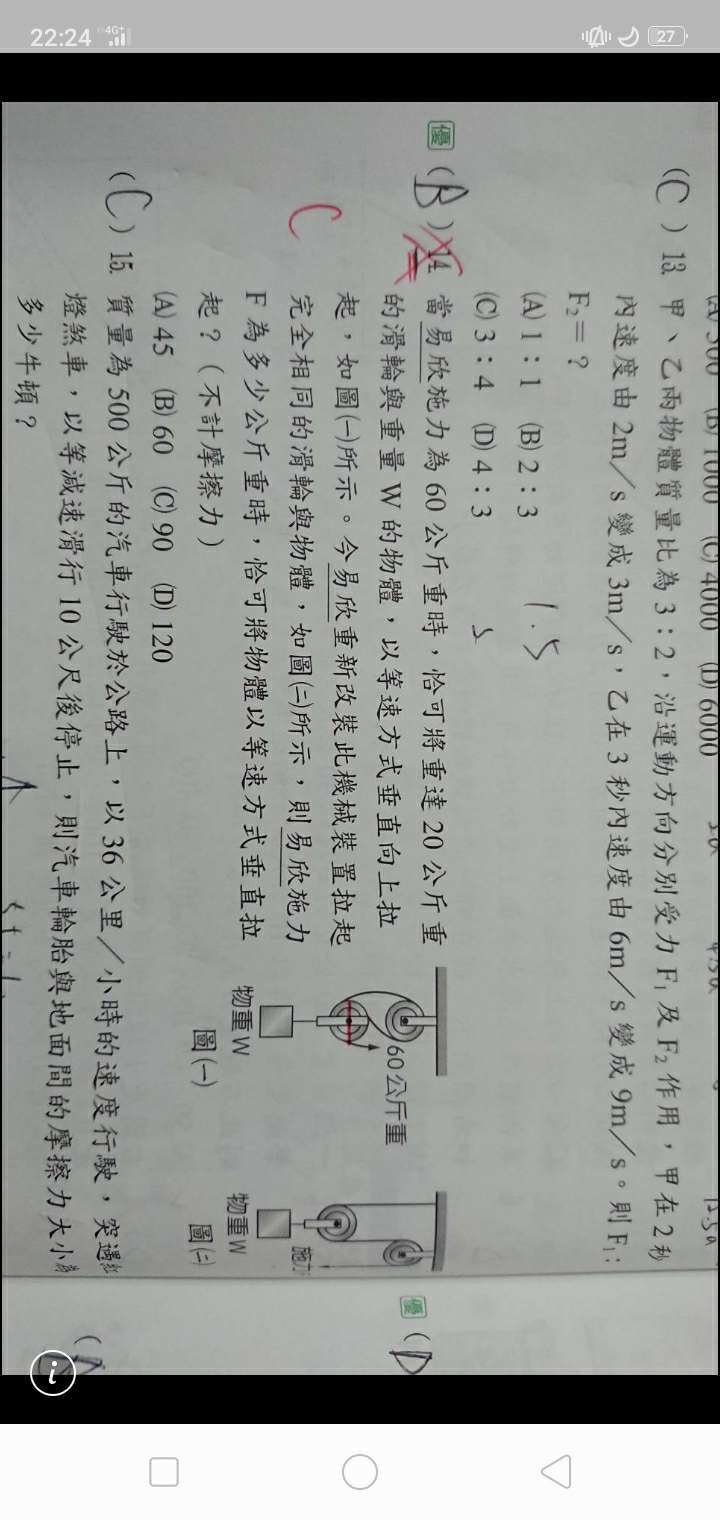 22:24
4G+
27
(B) 1000 (C) 4000 (D) 6000
(C) 13. 甲、乙兩物體質量比為 3:2,沿運動方向分別受力 F₁ 及 F₂ 作用,甲在 2 秒
內速度由 2m/s 變成 3m/s,乙在 3 秒內速度由 6m/s 變成 9m/s。則 F₁:
F₂=?
(A) 1:1 (B) 2:3
(C) 3:4 (D) 4:3
1.5
優 (B) 14. 當易欣施力為 60 公斤重時,恰可將重達 20 公斤重
的滑輪與重量 W 的物體,以等速方式垂直向上拉
起,如圖(一)所示。今易欣重新改裝此機械裝置拉起
C
完全相同的滑輪與物體,如圖(二)所示,則易欣施力
F 為多少公斤重時,恰可將物體以等速方式垂直拉
起?(不計摩擦力)
(A) 45 (B) 60 (C) 90 (D) 120
60公斤重
物重W
圖(一)
施力
物重W
圖(二)
(C) 15. 質量為 500 公斤的汽車行駛於公路上,以 36 公里/小時的速度行駛,突遇紅
燈煞車,以等減速滑行 10 公尺後停止,則汽車輪胎與地面間的摩擦力大小為
多少牛頓?
優 (D